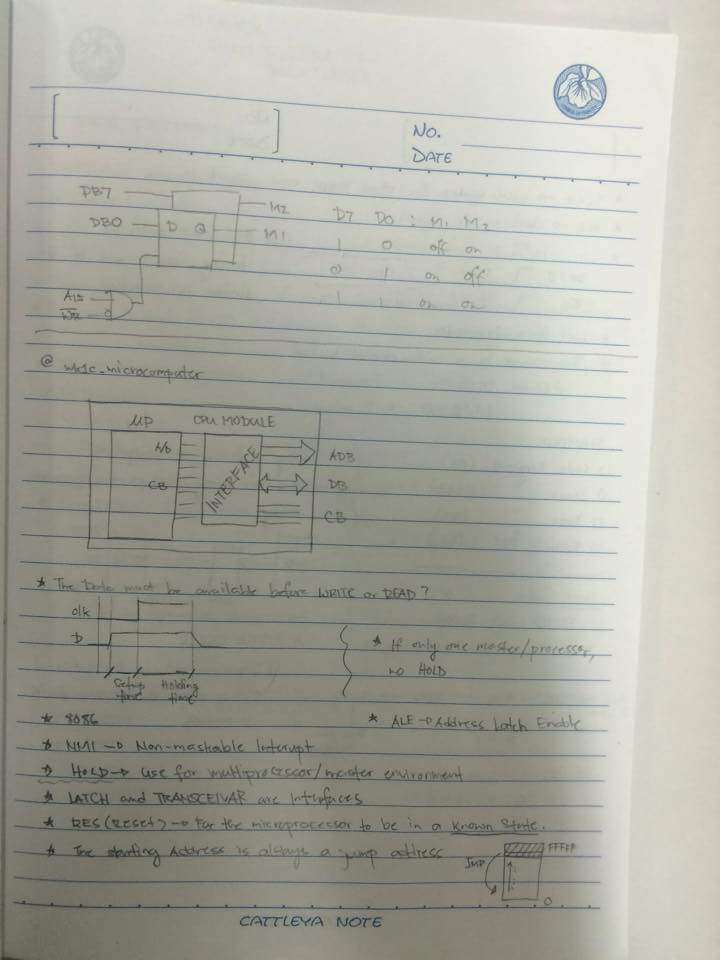 No.
DATE
DB7 M2 D7 D0 : M1 M2
DB0 D Q M1 1 0 off on
0 1 on off
A15 1 1 on on
WR
@ microcomputer
μP CPU MODULE
INTERFACE ADB
CB DB
CB
* The Data must be available before WRITE or READ?
clk
D * If only one master/processor,
no HOLD
Setup time Holding time
* 8086 * ALE → Address Latch Enable
* NMI → Non-maskable Interupt
* HOLD → use for multiprocessor/master environment
* LATCH and TRANSCEIVAR are Interfaces
* RES (Reset) → For the microprocessor to be in a known state.
* The starting Address is always a jump address JMP FFFFF
0
CATTLEYA NOTE